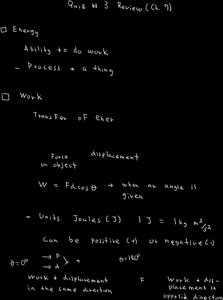 Quiz # 3 Review (Ch. 9)
□ Energy
Ability to do work
- Process + a thing
□ Work
Transfer of ener
Force displacement
on object
W = Fd cos θ → when an angle is
given
- Units Joules (J) 1 J = 1 kg m²/s²
Can be positive (+) or negative (-)
θ=0° → F → d θ=180°
Work + displacement
in the same direction
F Work + dis-
placement in
opposite direction